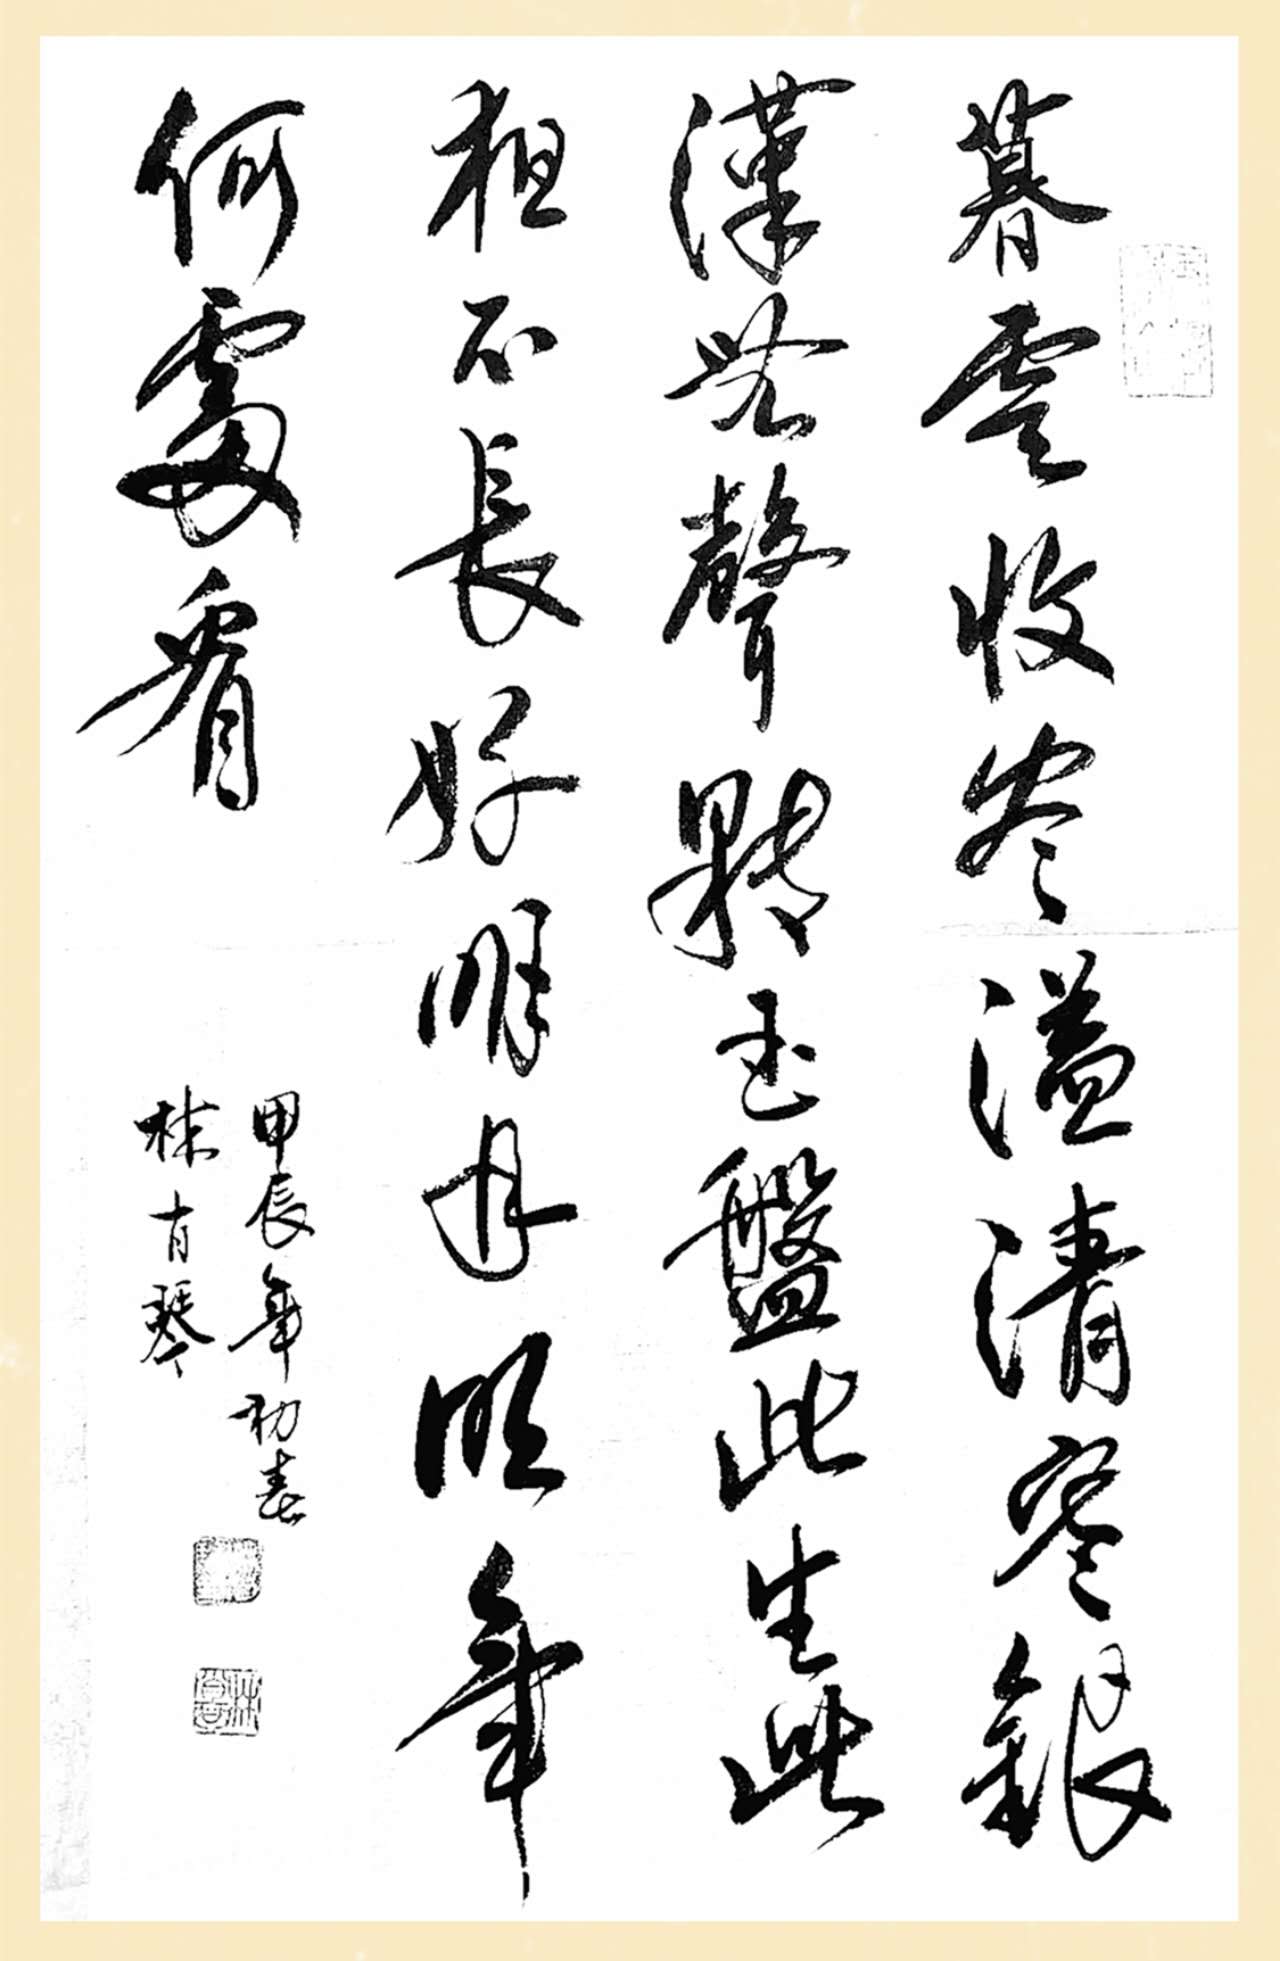 暮雲收尽溢清寒銀
漢无聲轉玉盤此生此
夜不長好明月明年
何處看
甲辰年初春
林肖琴